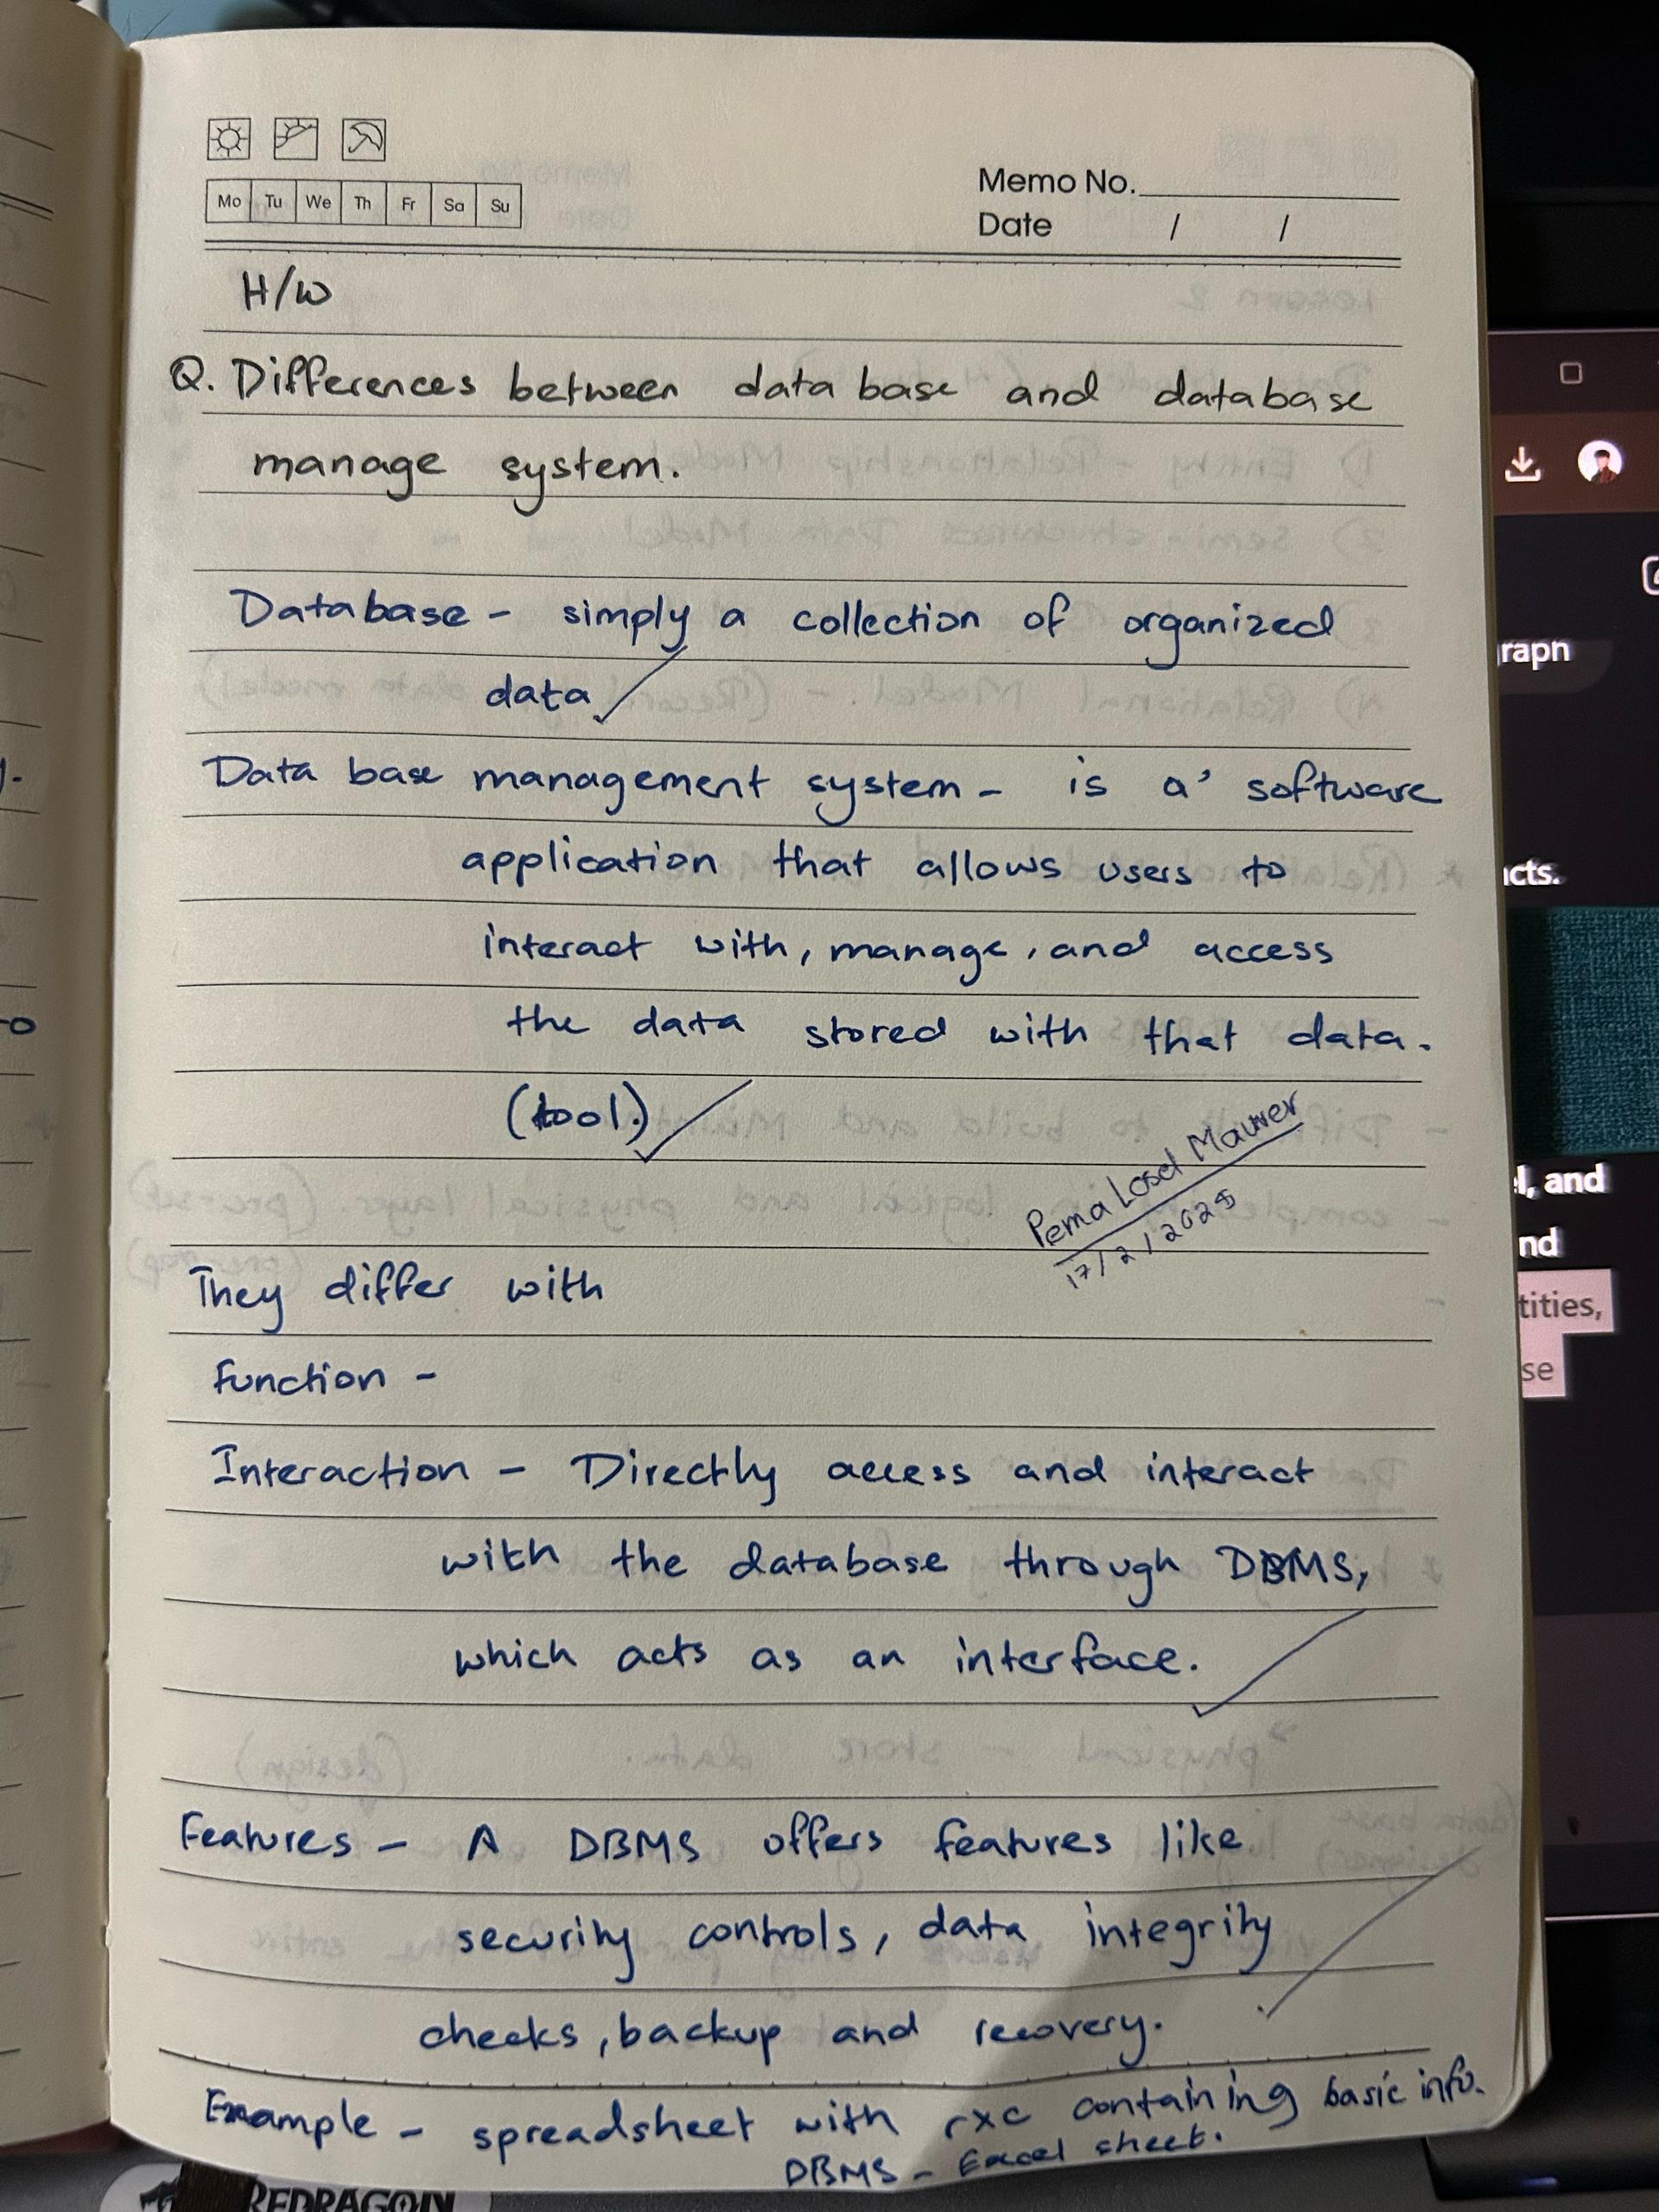 Mo Tu We Th Fr Sa Su
Memo No.
Date / /
H/W
Q. Differences between data base and database
manage system.
Database - simply a collection of organized
data
Data base management system - is a' software
application that allows users to
interact with, manage, and access
the data stored with that data.
(tool.)
Pema Losel Maurer
17/2/2025
They differ with
Function -
Interaction - Directly access and interact
with the database through DBMS,
which acts as an interface.
Features - A DBMS offers features like
security controls, data integrity
checks, backup and recovery.
Example - spreadsheet with rxc containing basic info.
DBMS - Excel sheet.
raph
cts.
l, and
nd
tities,
se
REDRAGON